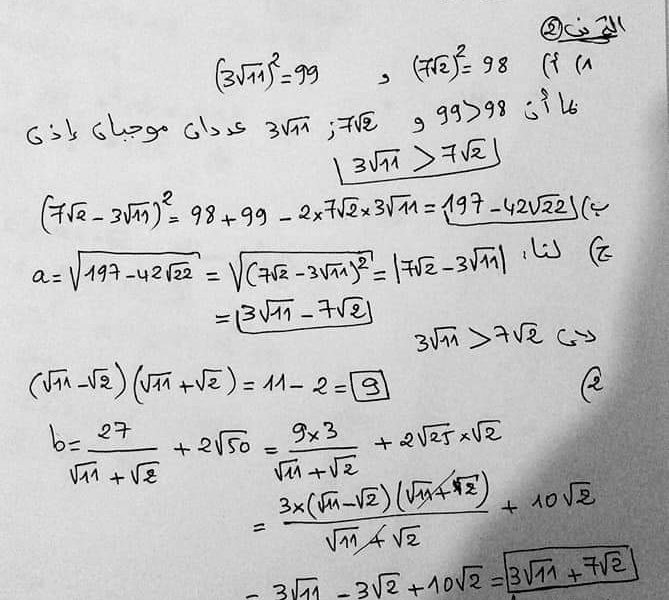 التمرين ②
1) أ) (7√2)² = 98 و (3√11)² = 99
بما أن 99>98 و 7√2 ; 3√11 عددان موجبان إذن
3√11 > 7√2
ب) (7√2 - 3√11)² = 98 + 99 - 2×7√2×3√11 = 197 - 42√22
ج) لنا: a = √(197-42√22) = √((7√2 - 3√11)²) = |7√2 - 3√11|
= 3√11 - 7√2
3√11 > 7√2
2) (√11 - √2)(√11 + √2) = 11 - 2 = 9
b = 27/(√11 + √2) + 2√50 = 9×3/(√11 + √2) + 2√25×√2
= 3×(√11-√2)(√11+√2)/(√11+√2) + 10√2
= 3√11 - 3√2 + 10√2 = 3√11 + 7√2